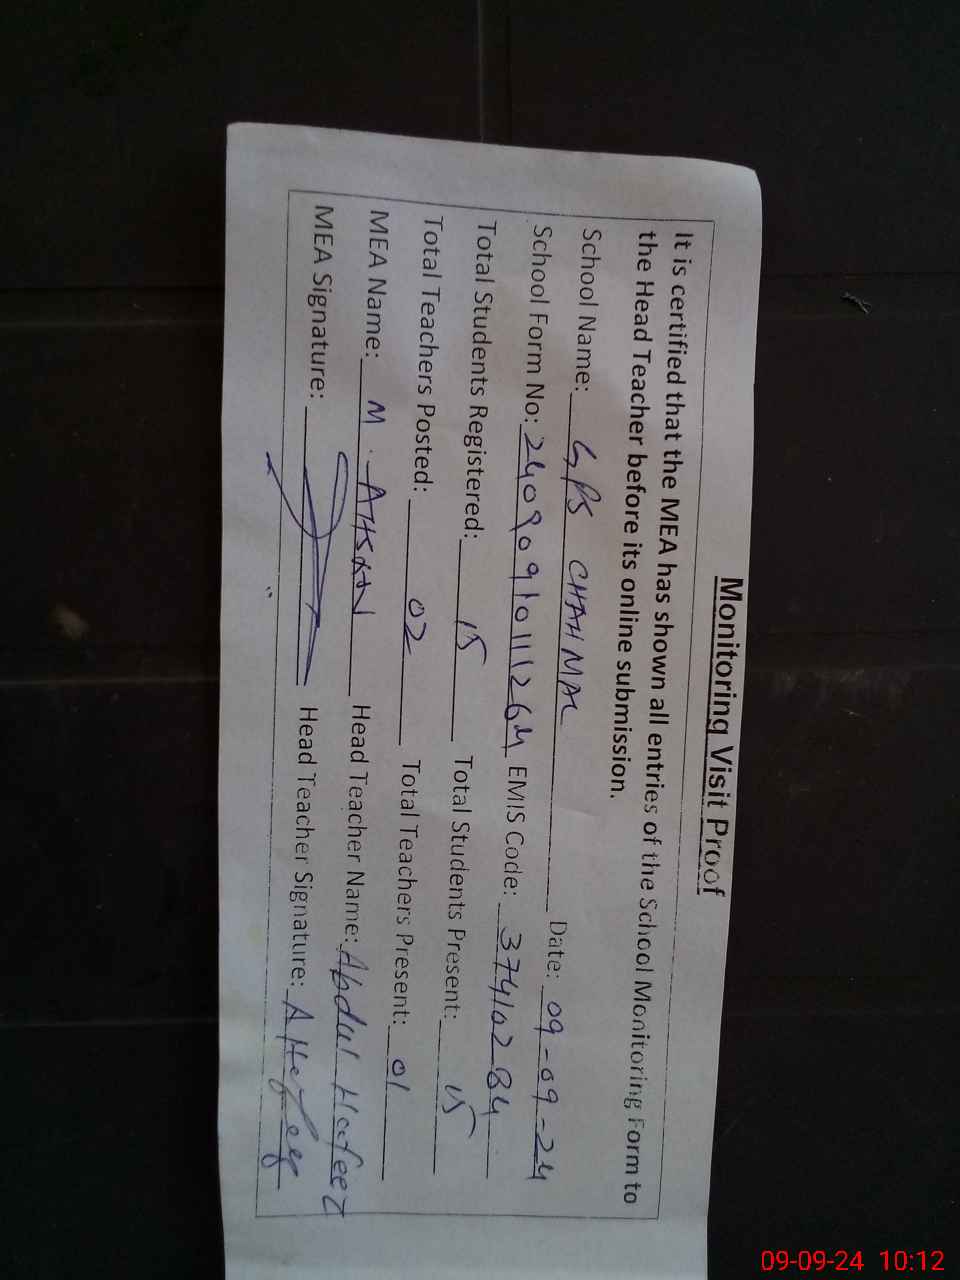 Monitoring Visit Proof
It is certified that the MEA has shown all entries of the School Monitoring Form to
the Head Teacher before its online submission.
School Name: GPS CHAHMAL Date: 09-09-24
School Form No: 24090910111264 EMIS Code: 37410284
Total Students Registered: 15 Total Students Present: 15
Total Teachers Posted: 02 Total Teachers Present: 01
MEA Name: M. AHSAN Head Teacher Name: Abdul Hafeez
MEA Signature: Head Teacher Signature: AHafeez
09-09-24 10:12